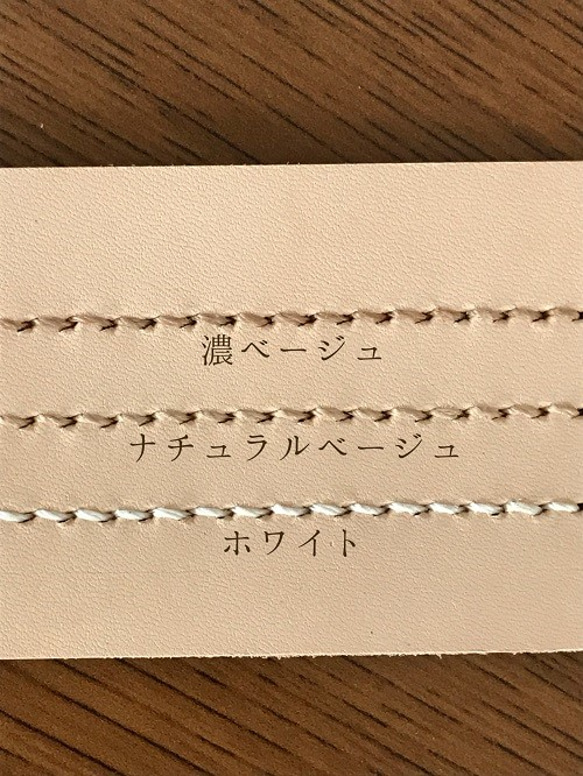 濃ベージュ
ナチュラルベージュ
ホワイト